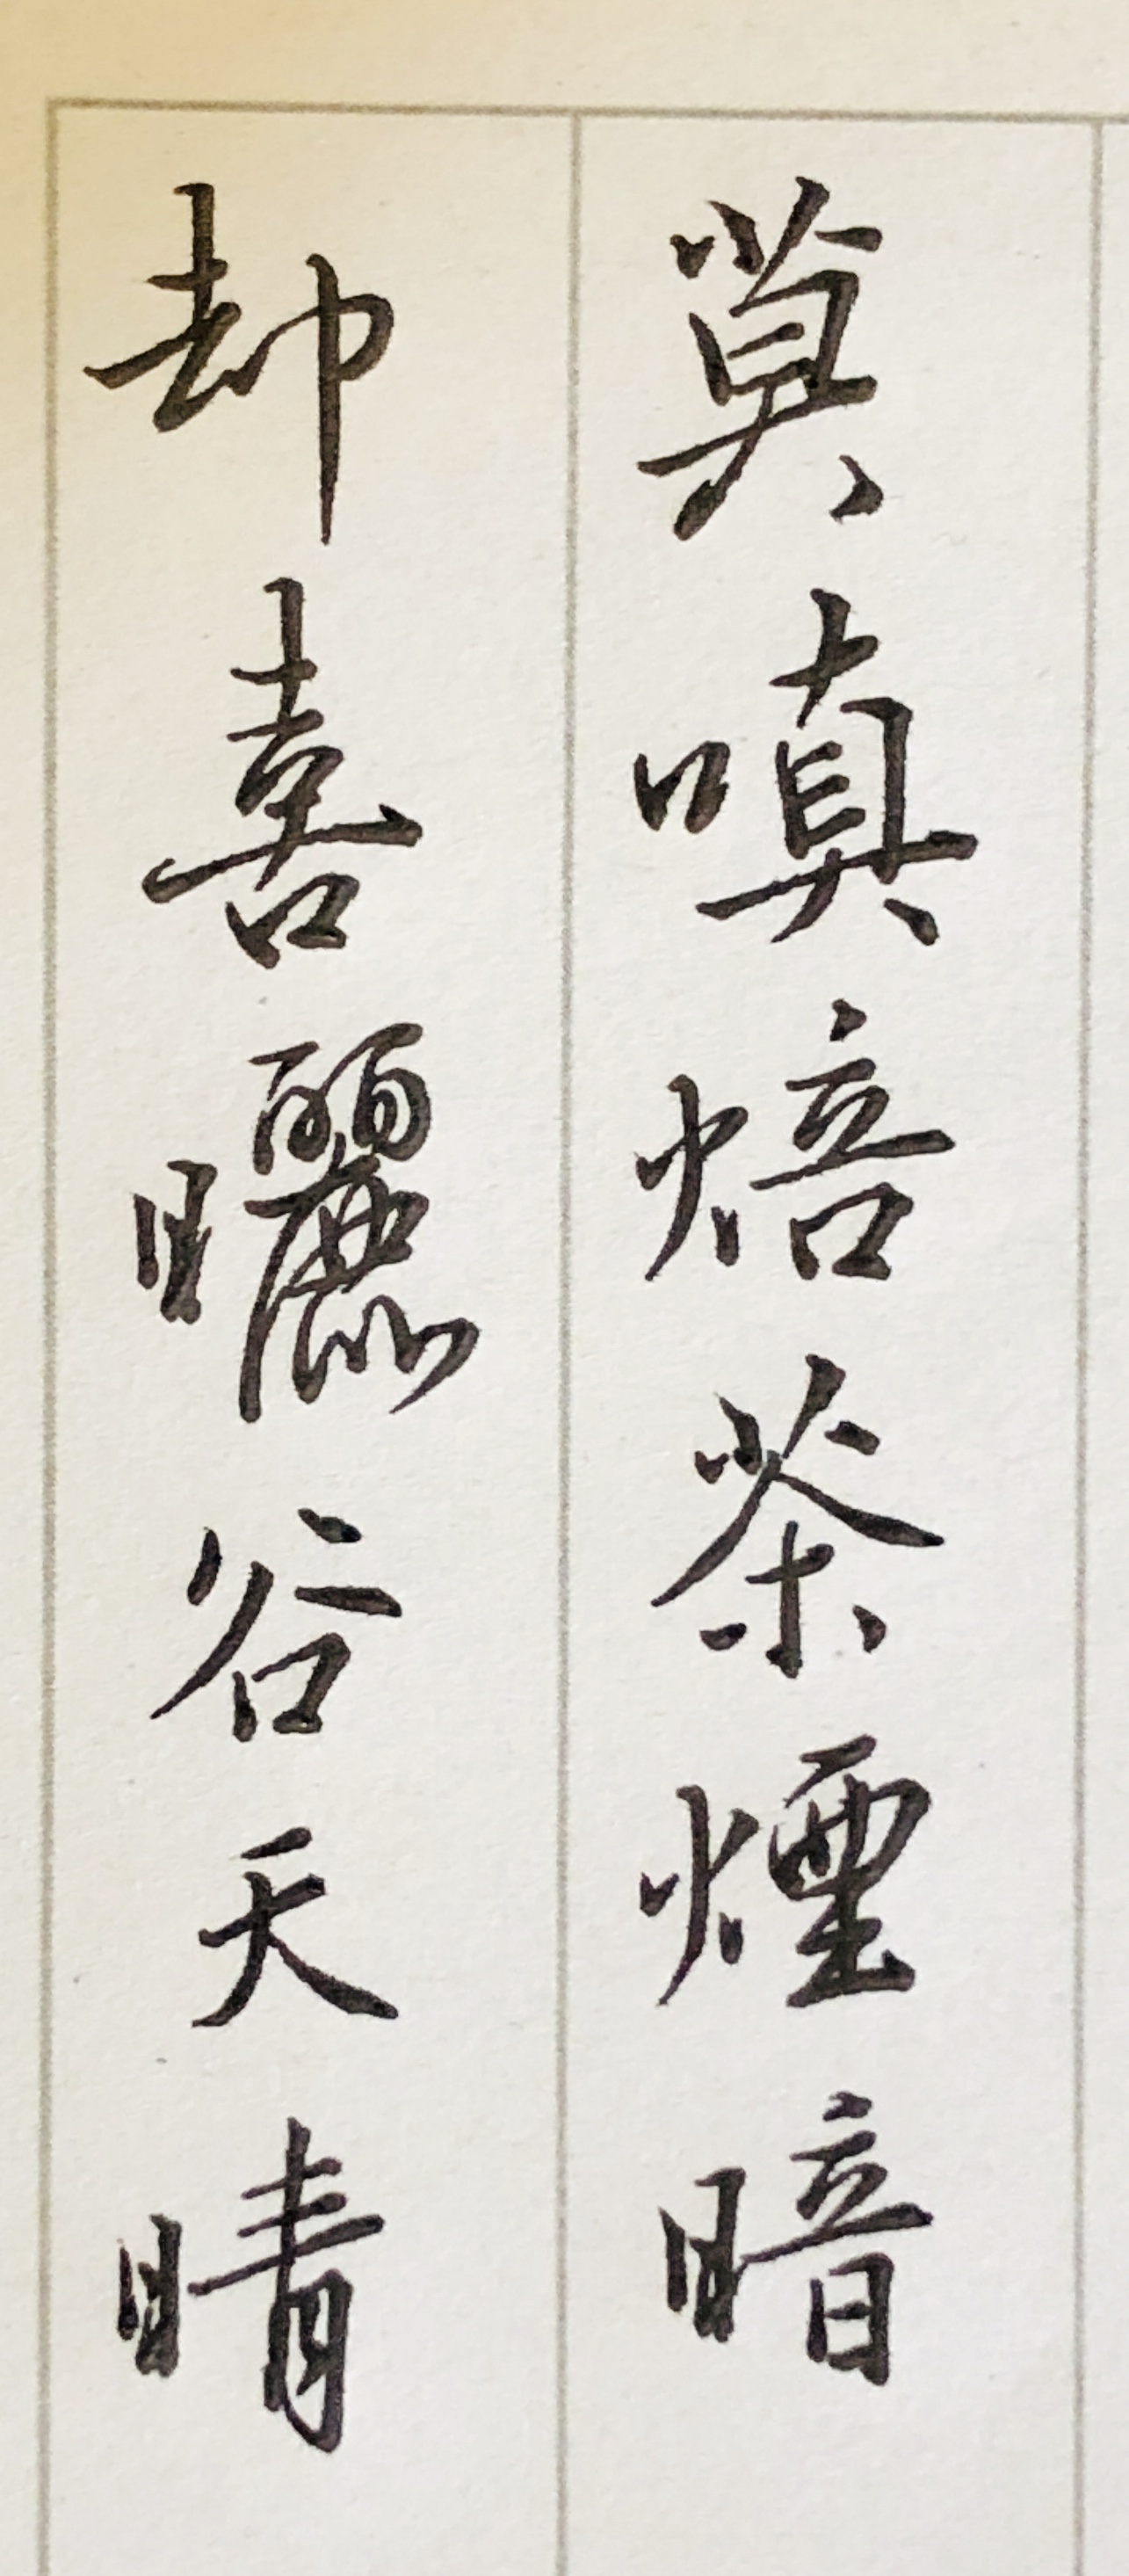 莫嗔焙茶煙暗
却喜曬谷天晴